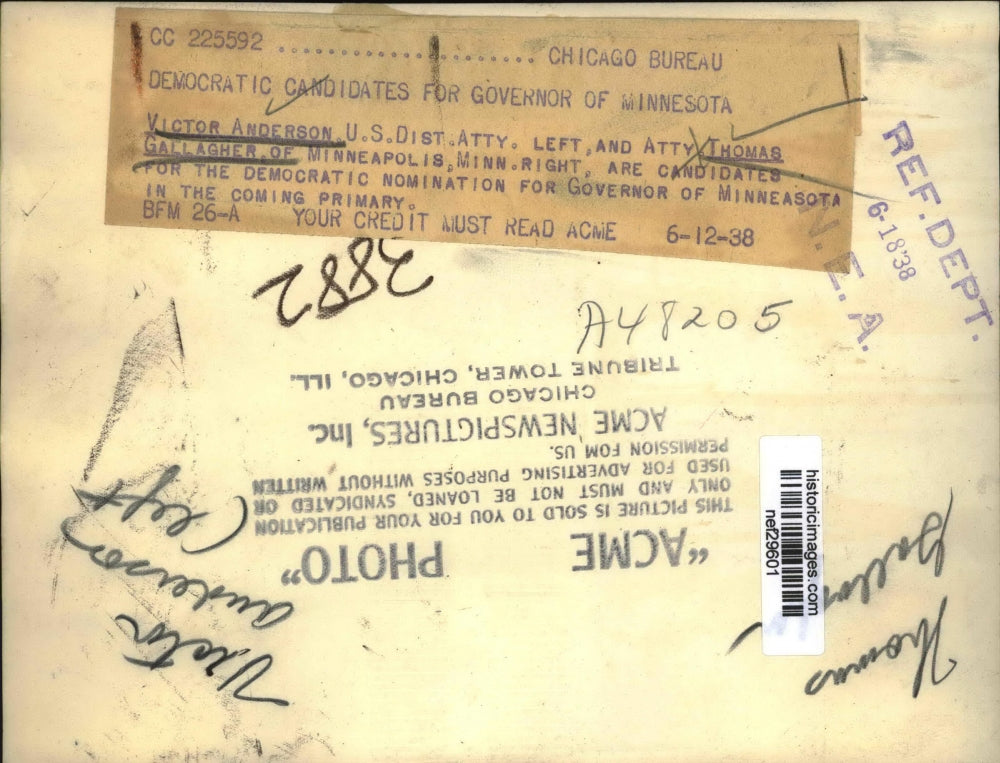 CC 225592 .......................... CHICAGO BUREAU
DEMOCRATIC CANDIDATES FOR GOVERNOR OF MINNESOTA
VICTOR ANDERSON U.S.DIST.ATTY. LEFT,AND ATTY THOMAS
GALLAGHER,OF MINNEAPOLIS,MINN.RIGHT, ARE CANDIDATES
FOR THE DEMOCRATIC NOMINATION FOR GOVERNOR OF MINNEASOTA
IN THE COMING PRIMARY.
BFM 26-A YOUR CREDIT MUST READ ACME 6-12-38
REF. DEPT.
6-18'38
N.E.A.
2882
A48205
"ACME PHOTO"
THIS PICTURE IS SOLD TO YOU FOR YOUR PUBLICATION
ONLY AND MUST NOT BE LOANED, SYNDICATED OR
USED FOR ADVERTISING PURPOSES WITHOUT WRITTEN
PERMISSION FOM US.
ACME NEWSPICTURES, Inc.
CHICAGO BUREAU
TRIBUNE TOWER, CHICAGO, ILL.
Victor
Anderson
(left
historicimages.com
nef29601
Thomas